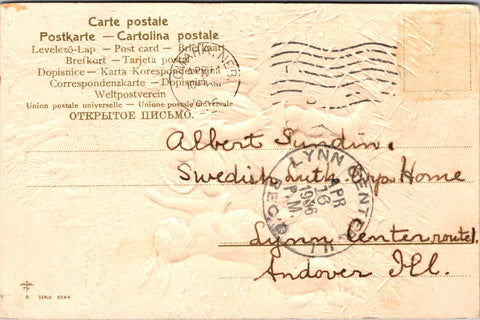 Carte postale
Postkarte — Cartolina postale
Levelező-Lap — Post card — Brefkaart
Brefkort — Tarjeta postal
Dopisnice — Karta Korespondencyjna
Correspondenzkarte — Dopisnica
Weltpostverein
Union postale universelle — Unione postale universale
ОТКРЫТОЕ ПИСЬМО.
OMAHA, NEB.
APR
Albert Sundin.
Swedish Luth. Orp Home
LYNN CENTER, ILL.
APR
16
1906
P.M.
REC'D
Lynn Center route 1.
Andover Ill.
SERIE